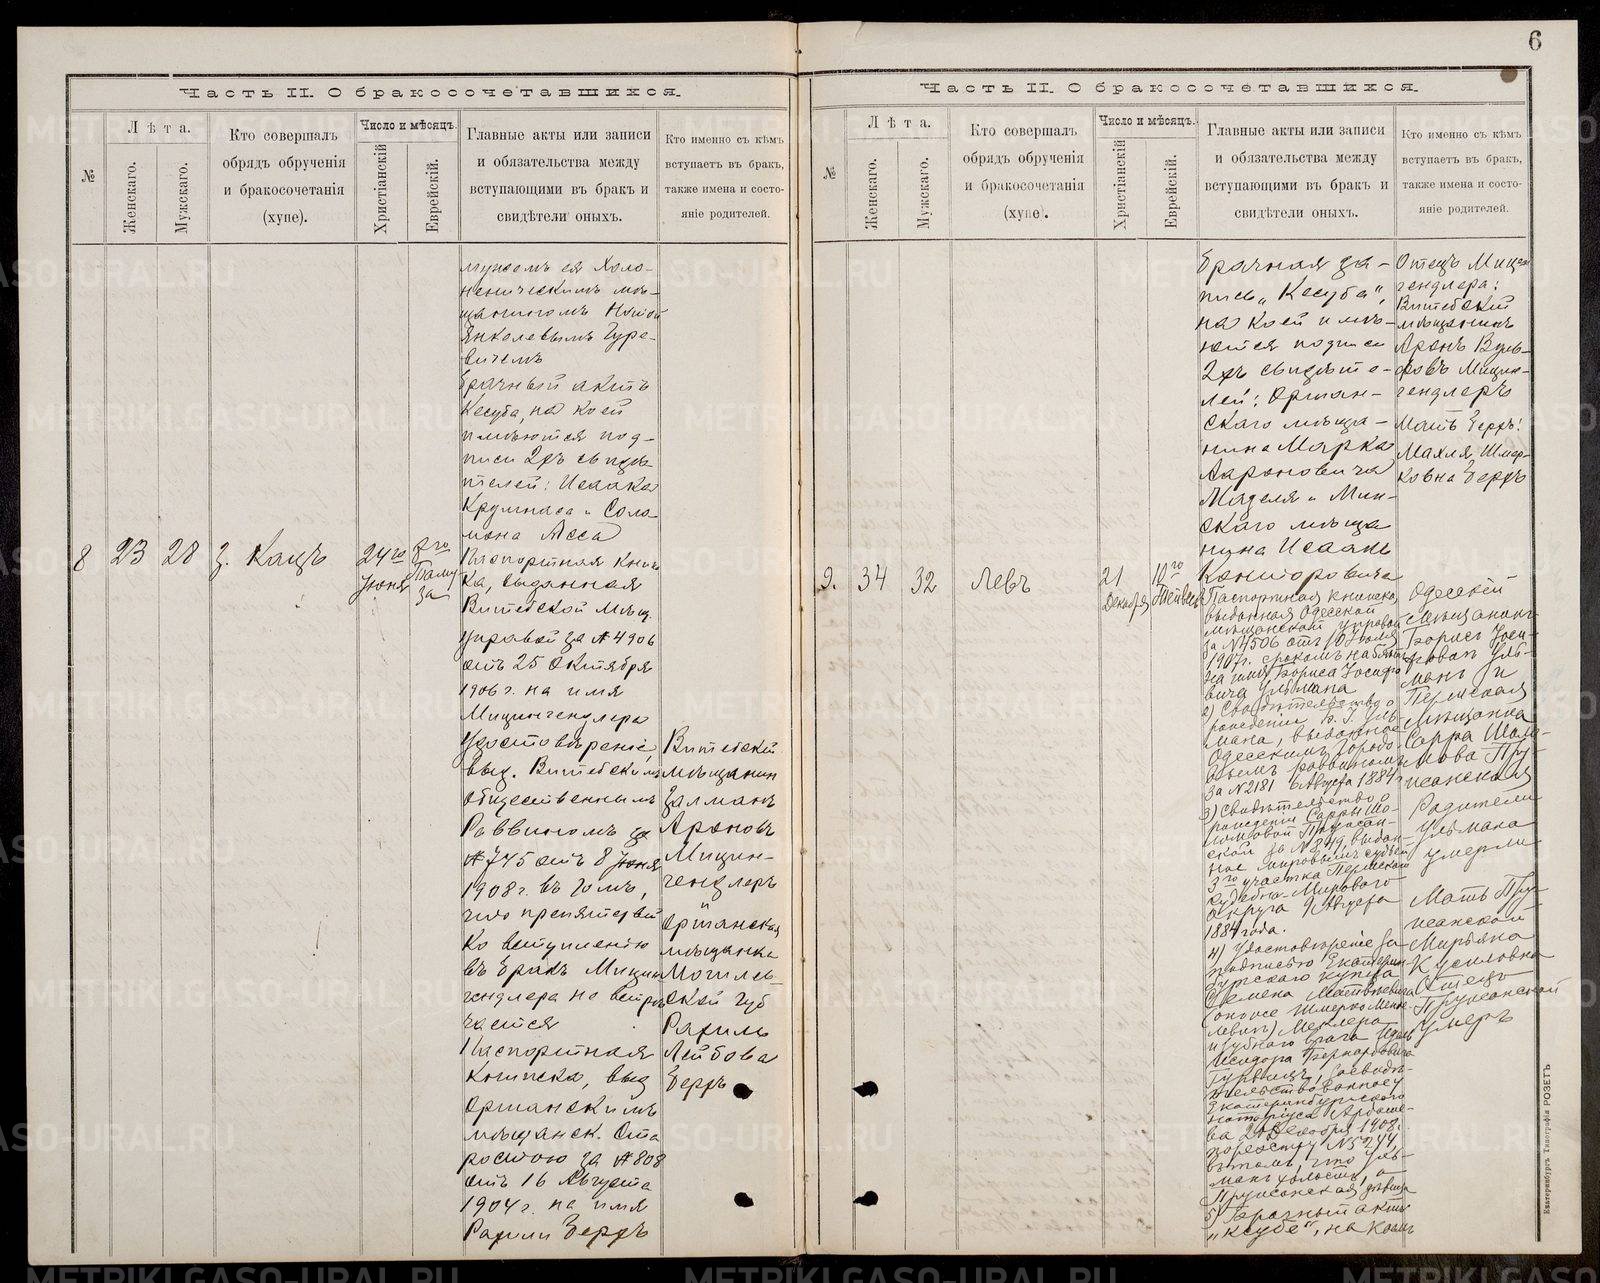 6
Часть II. О бракосочетавшихся.
№
Лѣта.
Женскаго.
Мужскаго.
Кто совершалъ
обрядъ обрученія
и бракосочетанія
(хупе).
Число и мѣсяцъ.
Христіанскій
Еврейскій.
Главные акты или записи
и обязательства между
вступающими въ бракъ и
свидѣтели оныхъ.
Кто именно съ кѣмъ
вступаетъ въ бракъ,
также имена и состо-
яніе родителей.
мужемъ ея Холо-
неническимъ мѣ-
щаниномъ Нотой
Янкелевымъ Гуре-
вичемъ
брачный актъ
Кесуба, на коей
имѣются под-
писи 2хъ свидѣ-
телей: Исаака
и Соло-
мона Асса
8
23
28
З. Кацъ
24го
Іюня
8го
Таму-
за
Паспортная книж
ка, выданная
Витебской Мѣщ.
Управой за № 4906
отъ 25 Октября
1906 г. на имя
Мицингендлера
Удостовѣреніе,
выд. Витебскимъ
общественнымъ
Раввиномъ за
№ 745 отъ 8 Іюня
1908 г. въ томъ,
что препятствій
ко вступленію
въ бракъ Мицин
гендлера не встрѣ
чается
Паспортная
книжка, выд
Оршанскимъ
мѣщанск. Ста
ростою за № 808
отъ 16 Августа
1904 г. на имя
Рахили Беръ
Витебскій
мѣщанин
Залманъ
Ароновъ
Мицин-
гендлеръ
и
Оршанская
мѣщанка
Могилев-
ской Губ
Рахиль
Лейбова
Беръ
Часть II. О бракосочетавшихся.
№
Лѣта.
Женскаго.
Мужскаго.
Кто совершалъ
обрядъ обрученія
и бракосочетанія
(хупе).
Число и мѣсяцъ.
Христіанскій
Еврейскій.
Главные акты или записи
и обязательства между
вступающими въ бракъ и
свидѣтели оныхъ.
Кто именно съ кѣмъ
вступаетъ въ бракъ,
также имена и состо-
яніе родителей.
брачная за-
пись „Кесуба“,
на коей имѣ-
ются подписи
2хъ свидѣте-
лей: Оршан-
скаго мѣща-
нина Марка
Аароновича
Маделя и Мин-
скаго мѣща
нина Исаакъ
Канторовича
Отецъ Мицен
гендлера:
Витебскій
мѣщанинъ
Аронъ Вуль-
фовъ Мицин-
гендлеръ
Мать Беръ:
Махля Шмер-
ковна Беръ
9.
34
32
Левъ
21
Декабря
10го
Тейвеса
Паспортная книжка
выданная Одесской
мѣщанской управой
за № 4506 отъ 10 Іюля
1907 г. срокомъ на 5 лѣтъ
на имя Бориса Іосифо
вича Ульмана
2) Свидѣтельство о
рожденіи Б. І. Уль-
мана, выданное
Одесскимъ Городо-
вымъ раввиномъ
за № 2181 6 Августа 1884 г.
3) Свидѣтельство о
рожденіи Сарры Шо-
ломовой Пружан-
ской за № 849, выдан-
ное мировымъ судьей
3го участка Пермскаго
Судебно-Мирового
округа 9 Августа
1884 года.
4) Удостовѣреніе за
подписью Екатерин-
бургскаго купца
Семена Матвѣевича
(онъ же Шмерко Менде-
левичъ) Меклера
и зубного врача Идель
Исидора Бернардовича
Гурвицъ, Засвидѣ-
тельствованное у
Екатеринбургскаго
нотаріуса Ардаше-
ва 20 Декабря 1908 г.
по реестру № 5244,
въ томъ, что Уль-
манъ холостъ, а
Пружанская дѣвица
5) Брачный актъ
„Ксубе“, на коемъ
Одесскій
мѣщанинъ
Борисъ Іоси-
фовъ Уль-
манъ и
Пермская
мѣщанка
Сарра Шоло-
мова Пру-
жанская
Родители
Ульмана
умерли
Мать Пру-
жанской
Мирьяна
Кусиловна
Отецъ
Пружанской
умеръ
Екатеринбургъ Типографія РОЗЕТЪ
METRIKI.GASO-URAL.RU